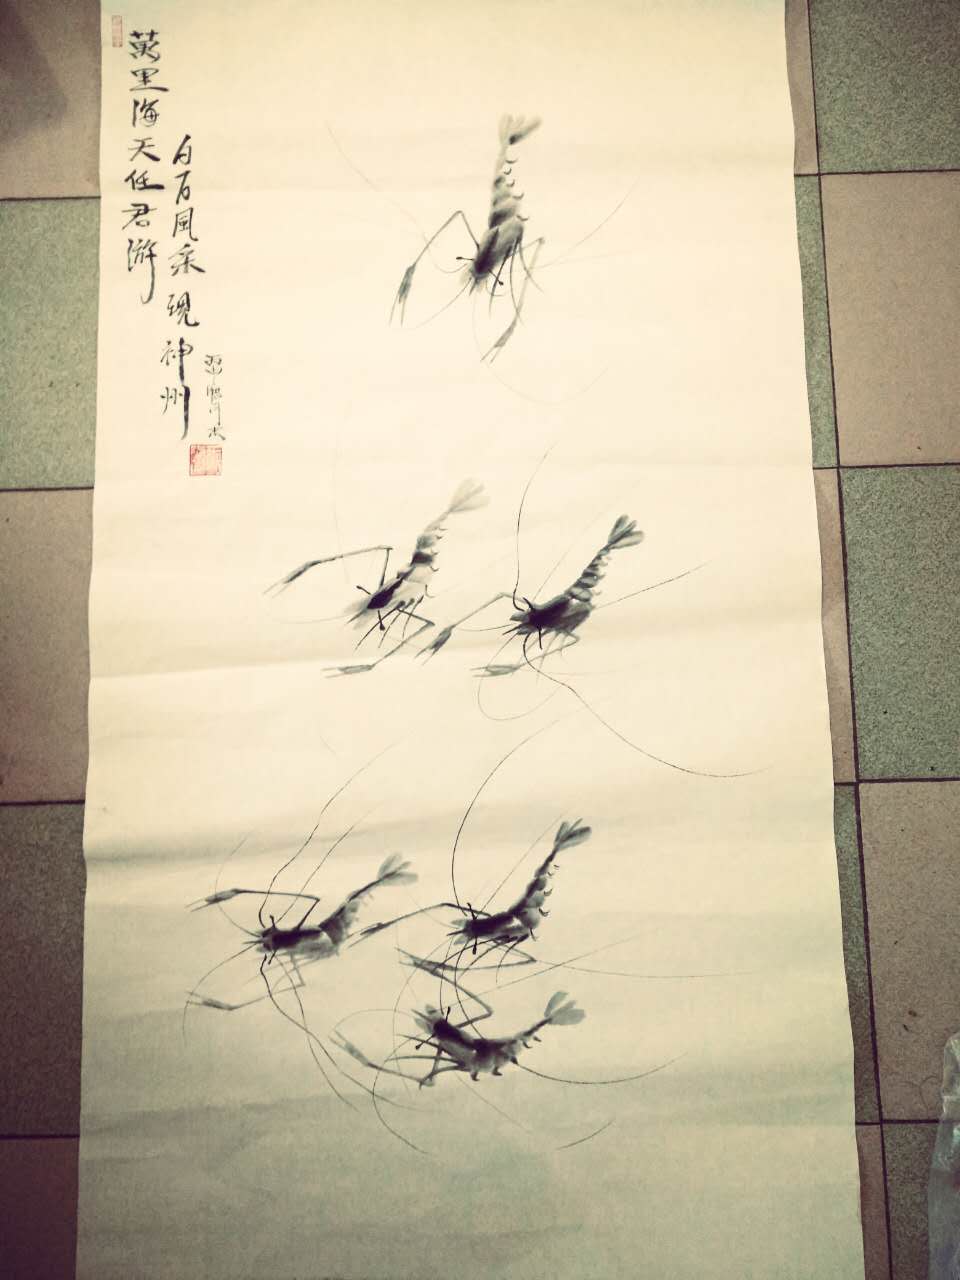 萬里海天任君游
白石風采現神州